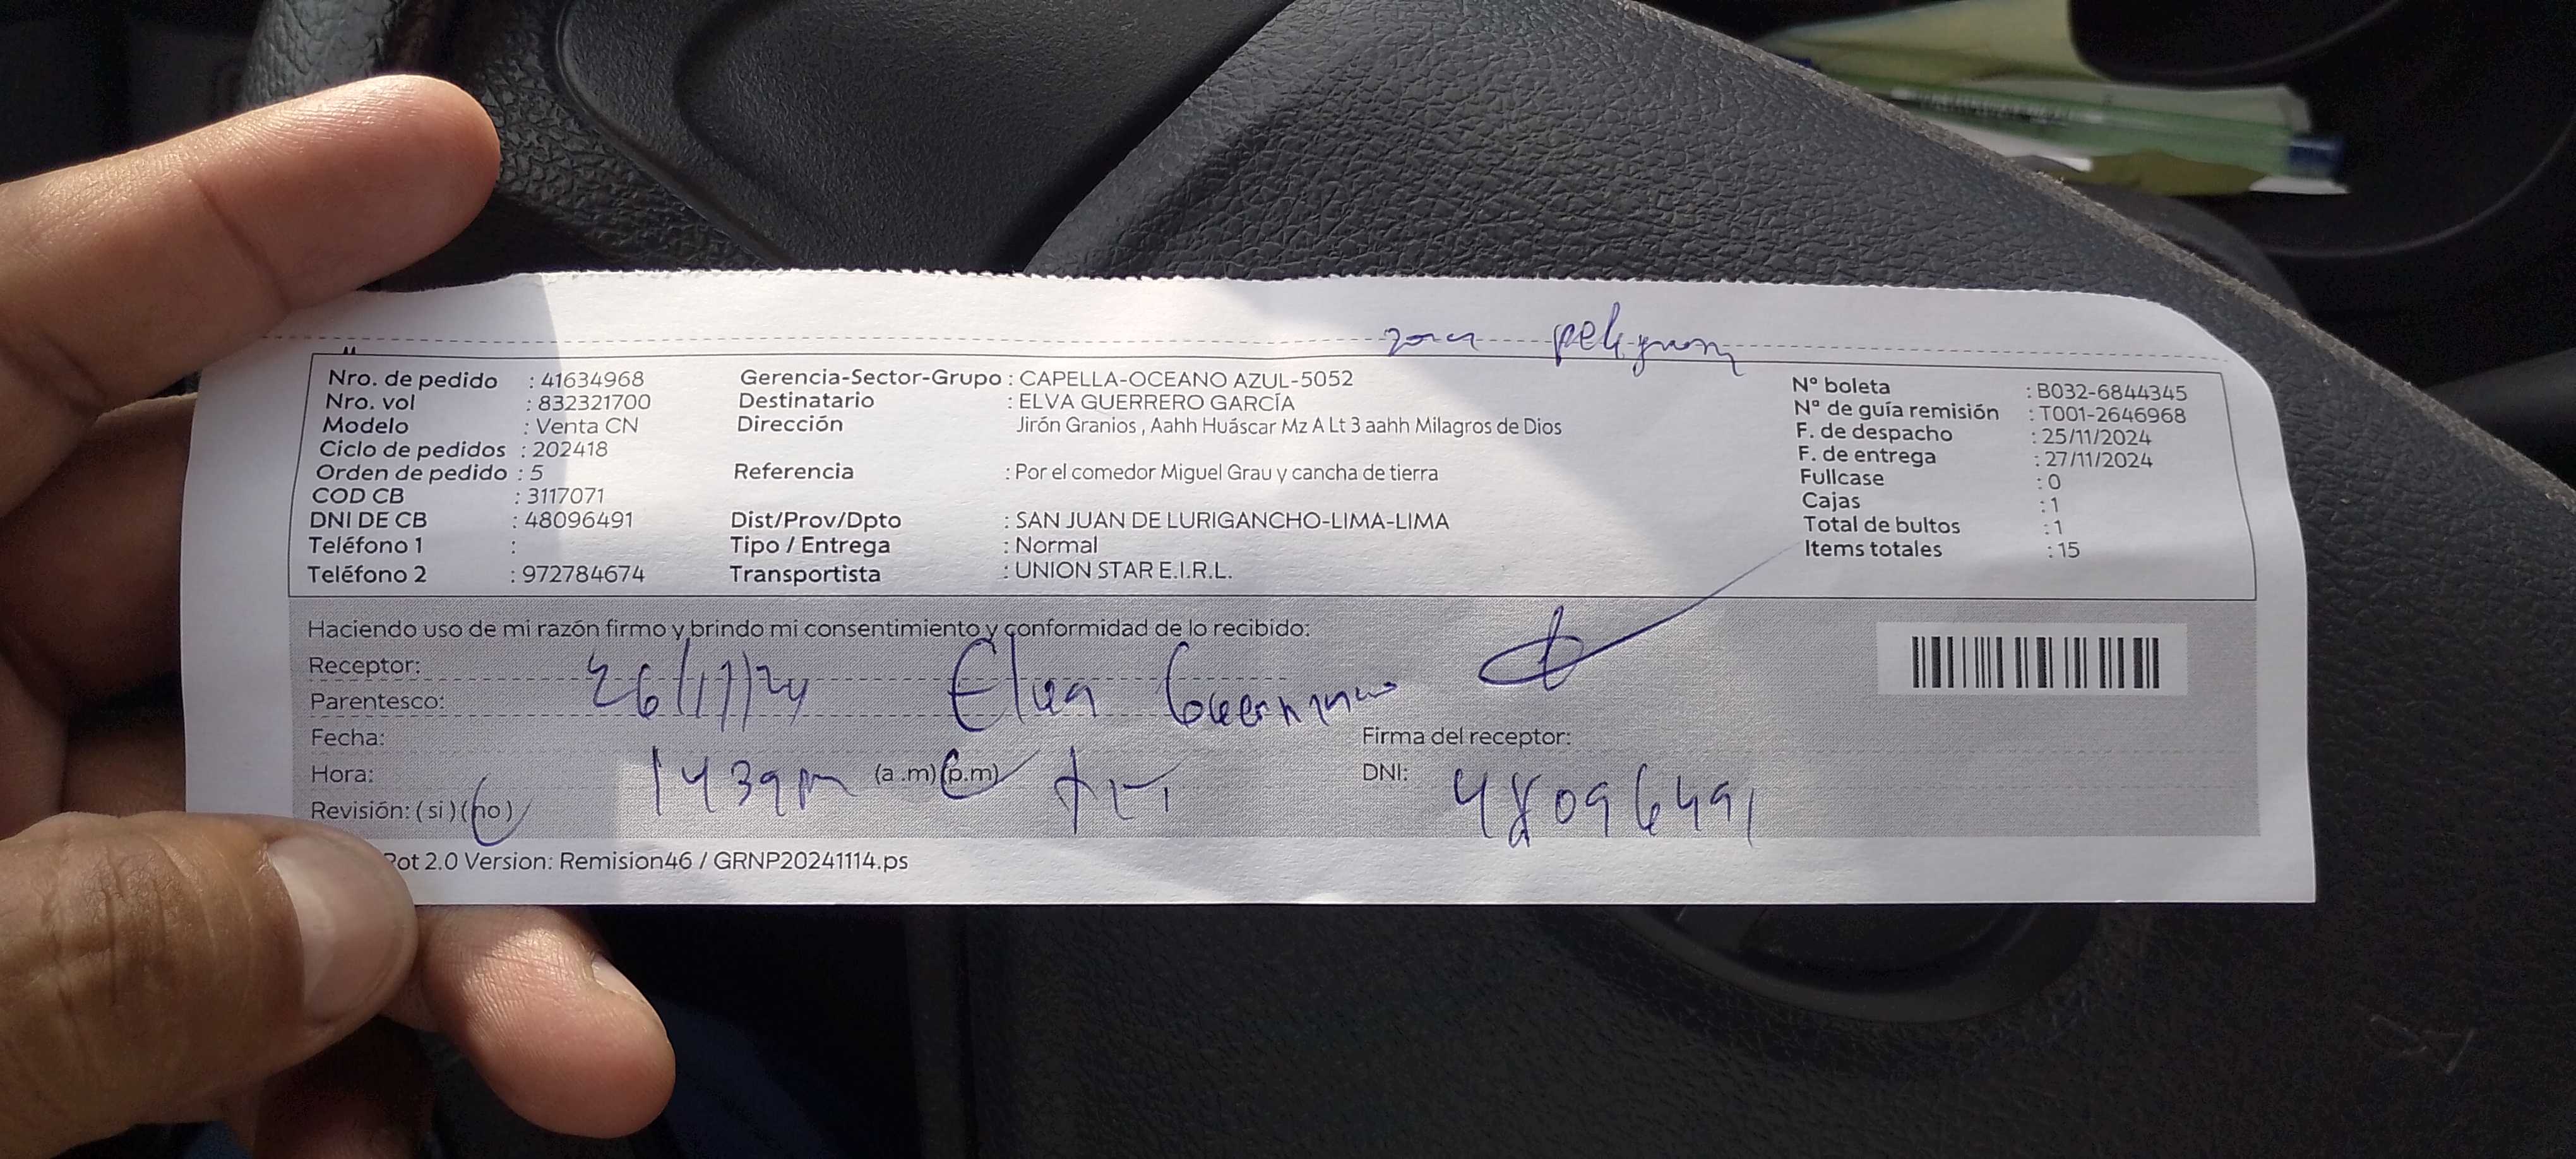 zona peligrosa
Nro. de pedido : 41634968
Nro. vol : 832321700
Modelo : Venta CN
Ciclo de pedidos : 202418
Orden de pedido : 5
COD CB : 3117071
DNI DE CB : 48096491
Teléfono 1 :
Teléfono 2 : 972784674
Gerencia-Sector-Grupo : CAPELLA-OCEANO AZUL-5052
Destinatario : ELVA GUERRERO GARCÍA
Dirección Jirón Granios , Aahh Huáscar Mz A Lt 3 aahh Milagros de Dios
Referencia : Por el comedor Miguel Grau y cancha de tierra
Dist/Prov/Dpto : SAN JUAN DE LURIGANCHO-LIMA-LIMA
Tipo / Entrega : Normal
Transportista : UNION STAR E.I.R.L.
Nº boleta : B032-6844345
Nº de guía remisión : T001-2646968
F. de despacho : 25/11/2024
F. de entrega : 27/11/2024
Fullcase : 0
Cajas : 1
Total de bultos : 1
Items totales : 15
Haciendo uso de mi razón firmo y brindo mi consentimiento y conformidad de lo recibido:
Receptor:
Parentesco: 26/11/24 Elva Guerrero
Fecha:
Hora: 1439pm (a.m)(p.m)
Revisión: (si)(no)
Firma del receptor:
DNI: 48096491
Pot 2.0 Version: Remision46 / GRNP20241114.ps